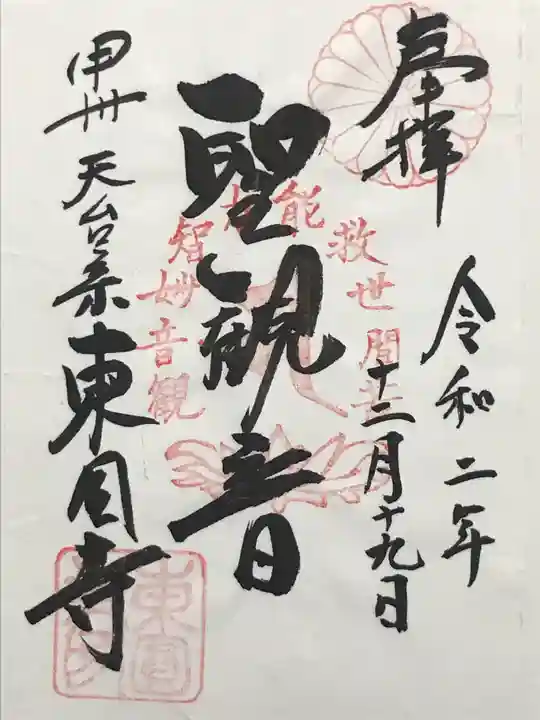 奉拝
令和二年
十二月十九日
聖観音
観音妙智力能救世間苦
甲州 天台宗 東円寺